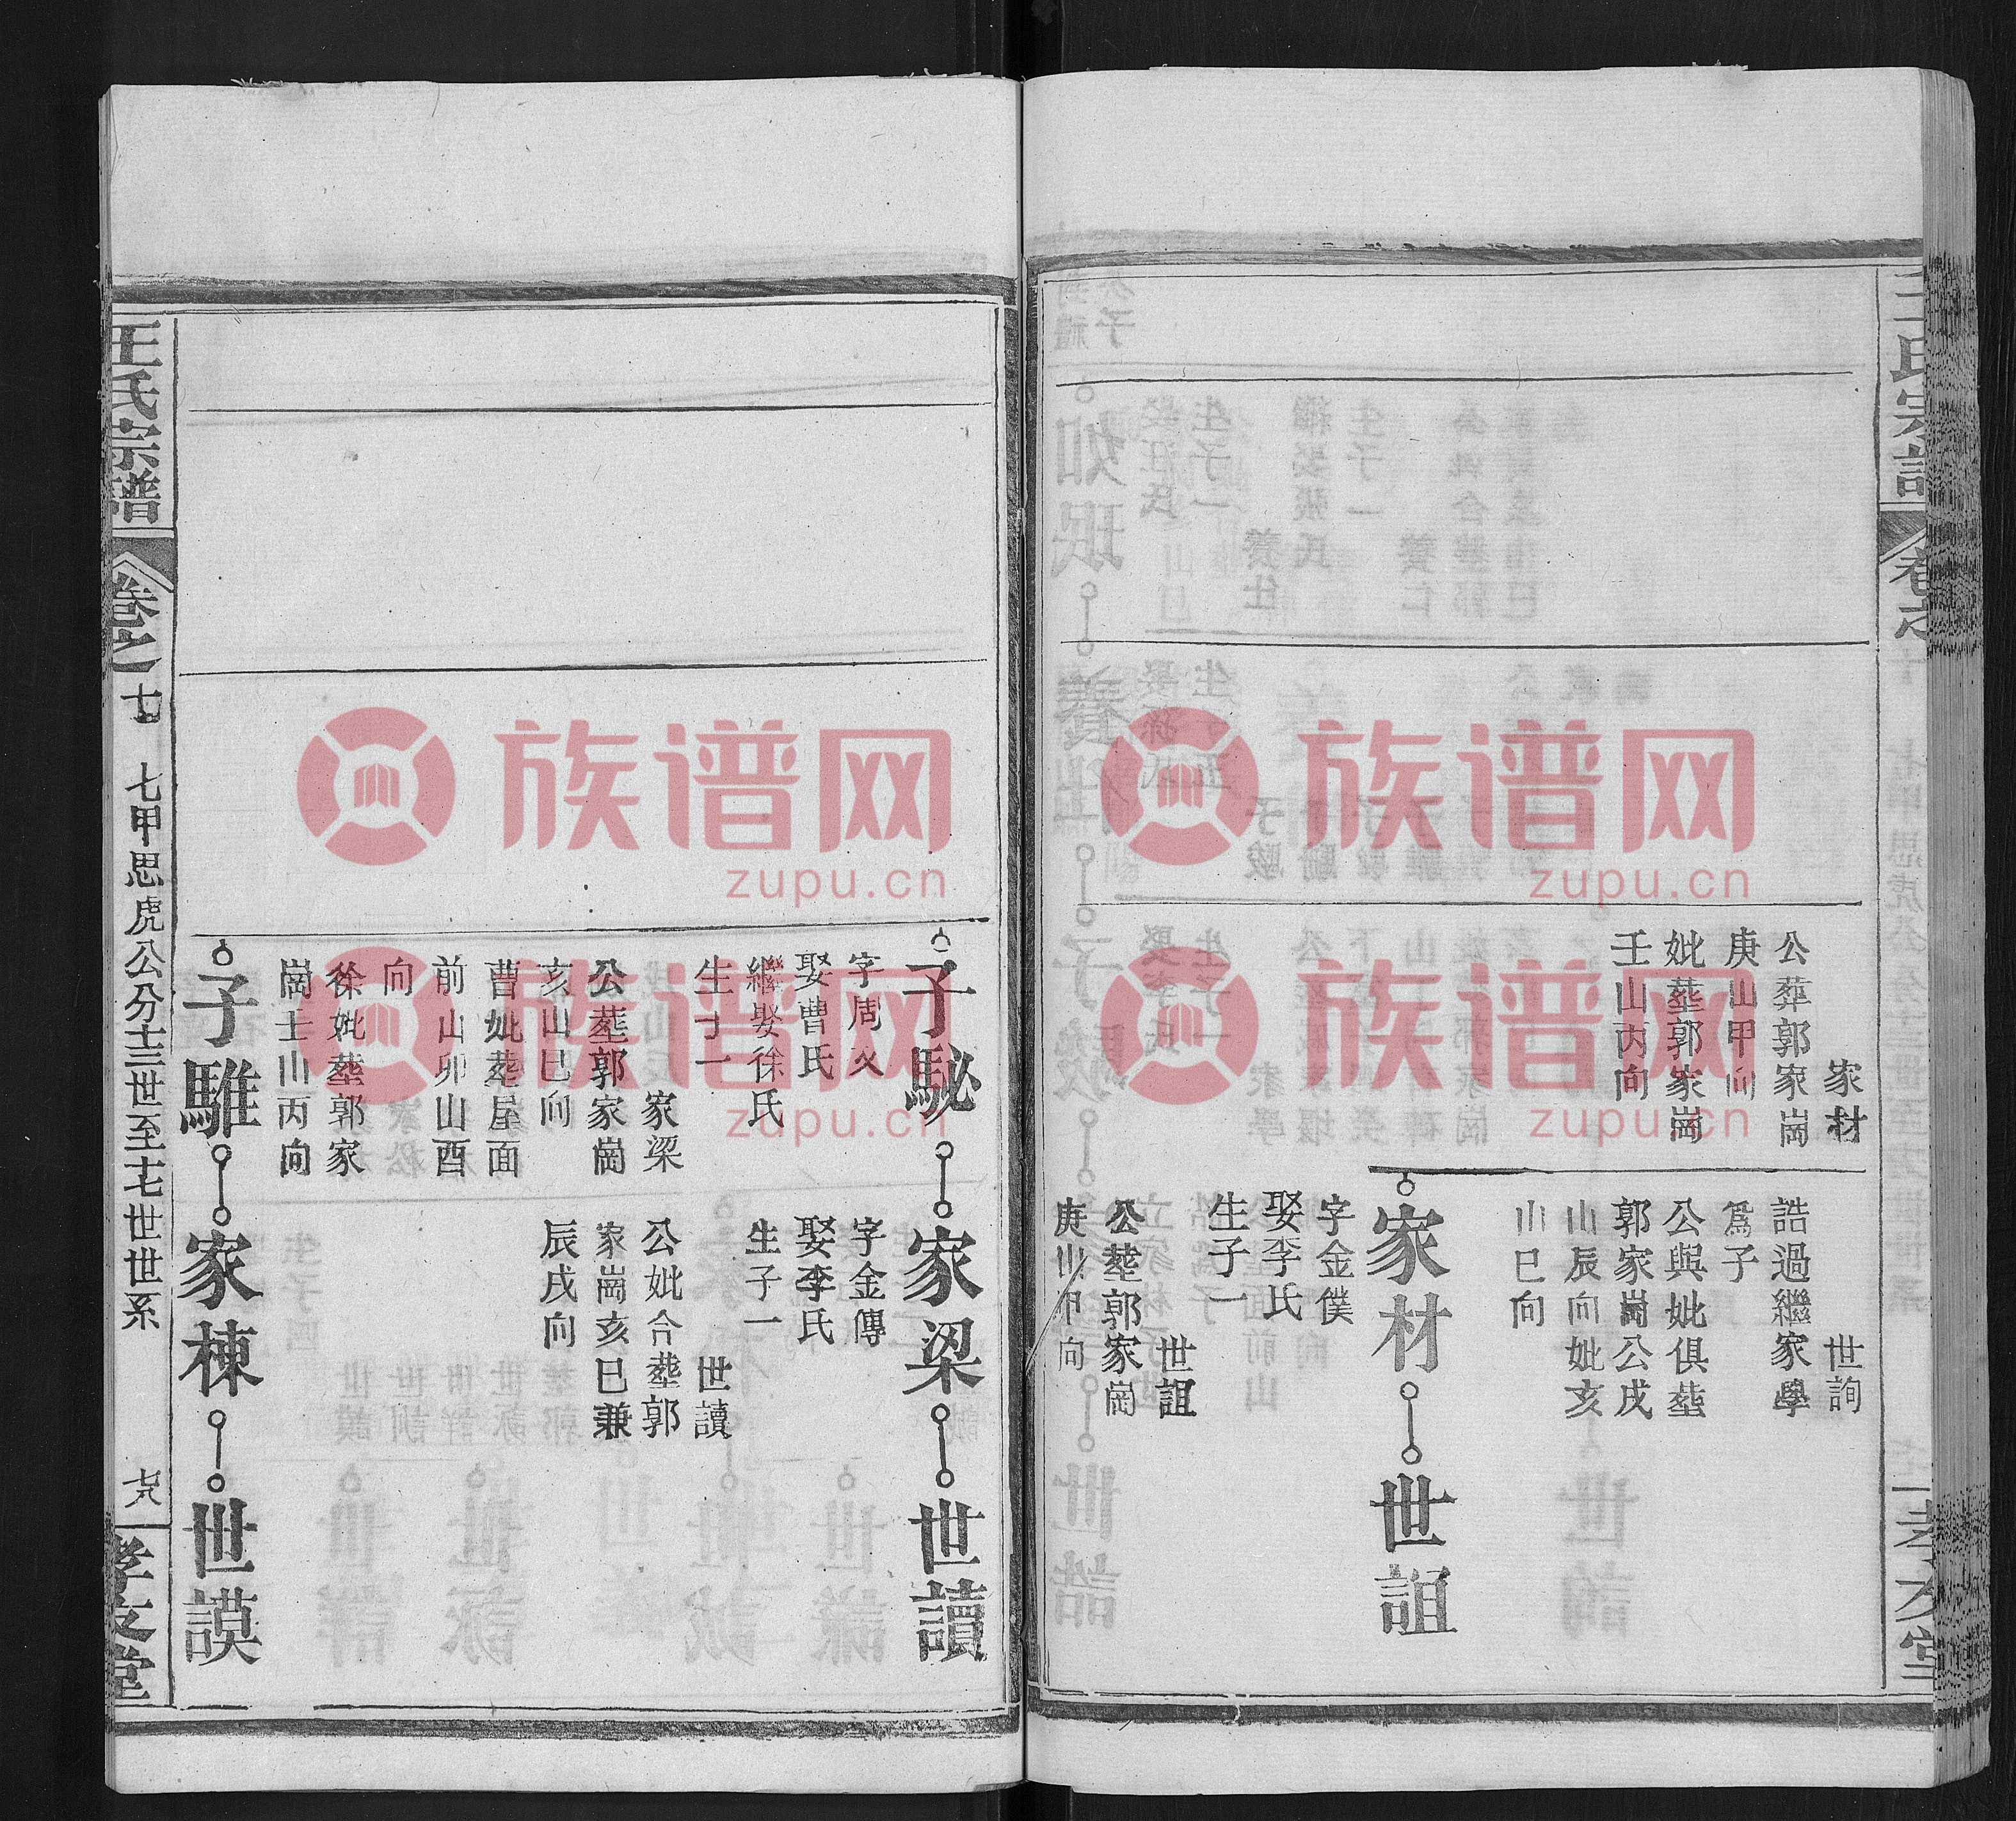 王氏宗譜
孝友堂
家材
公葬郭家崗
庚山甲向
妣塟郭家崗
壬山丙向
世詢
誥過繼家學
爲子
公與妣俱塟
郭家崗公戌
山辰向妣亥
山巳向
家材
世詛
字金僕
娶李氏
生子一
世詛
公塟郭家崗
庚山甲向
子駜
家梁
世讀
字周文
娶曹氏
繼娶徐氏
生子一
家梁
公塟郭家崗
亥山巳向
曹妣塟屋面
前山卯山酉
向
徐妣塟郭家
崗壬山丙向
字金傳
娶李氏
生子一
世讀
公妣合塟郭
家崗亥巳兼
辰戌向
子騅
家棟
世謨
王氏宗譜
卷之七
七甲思虎公分十三世至十七世世系
孝友堂
族谱网
zupu.cn
族谱网
zupu.cn
族谱网
zupu.cn
族谱网
zupu.cn